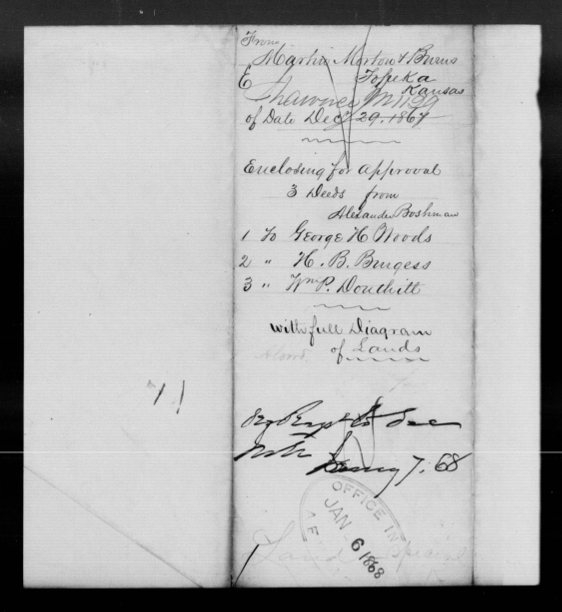 From
Martin Morton & Burns
Topeka
Kansas
E
Shawnee M 1129
of Date Decr 29. 1867
Enclosing for Approval
3 Deeds from
Alexander Boshman
1 To George H Woods
2 " H. B. Burgess
3 " Wm P. Douthitt
with full Diagram
of Lands
Rept to Sec
Jany 7. 68
OFFICE IN
JAN 6 1868
AF
Land
Special